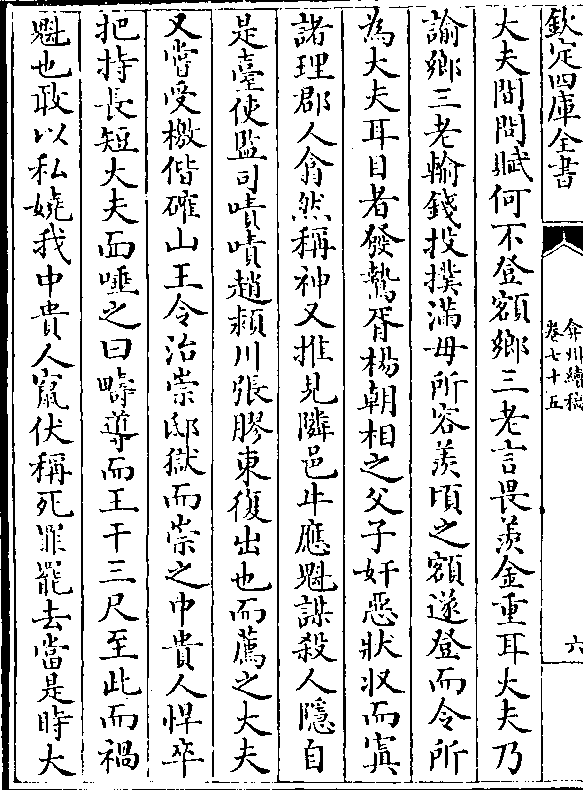 欽定四庫全書
弇州續稿
卷七十五
六
大夫間問賦何不登額鄉三老言畏羨金重耳大夫乃
諭鄉三老輸錢投撲滿毋所容羨頃之額遂登而令所
為大夫耳目者發鷙胥楊朝相之父子奸惡狀收而寘
諸理郡人翕然稱神又推見隣邑牛應魁謀殺人隱自
是臺使監司嘖嘖趙潁川張膠東復出也而薦之大夫
又嘗受檄偕確山王令治崇邸獄而崇之中貴人悍卒
把持長短大夫面唾之曰疇導而王干三尺至此而禍
魁也敢以私嬈我中貴人竄伏稱死罪罷去當是時大